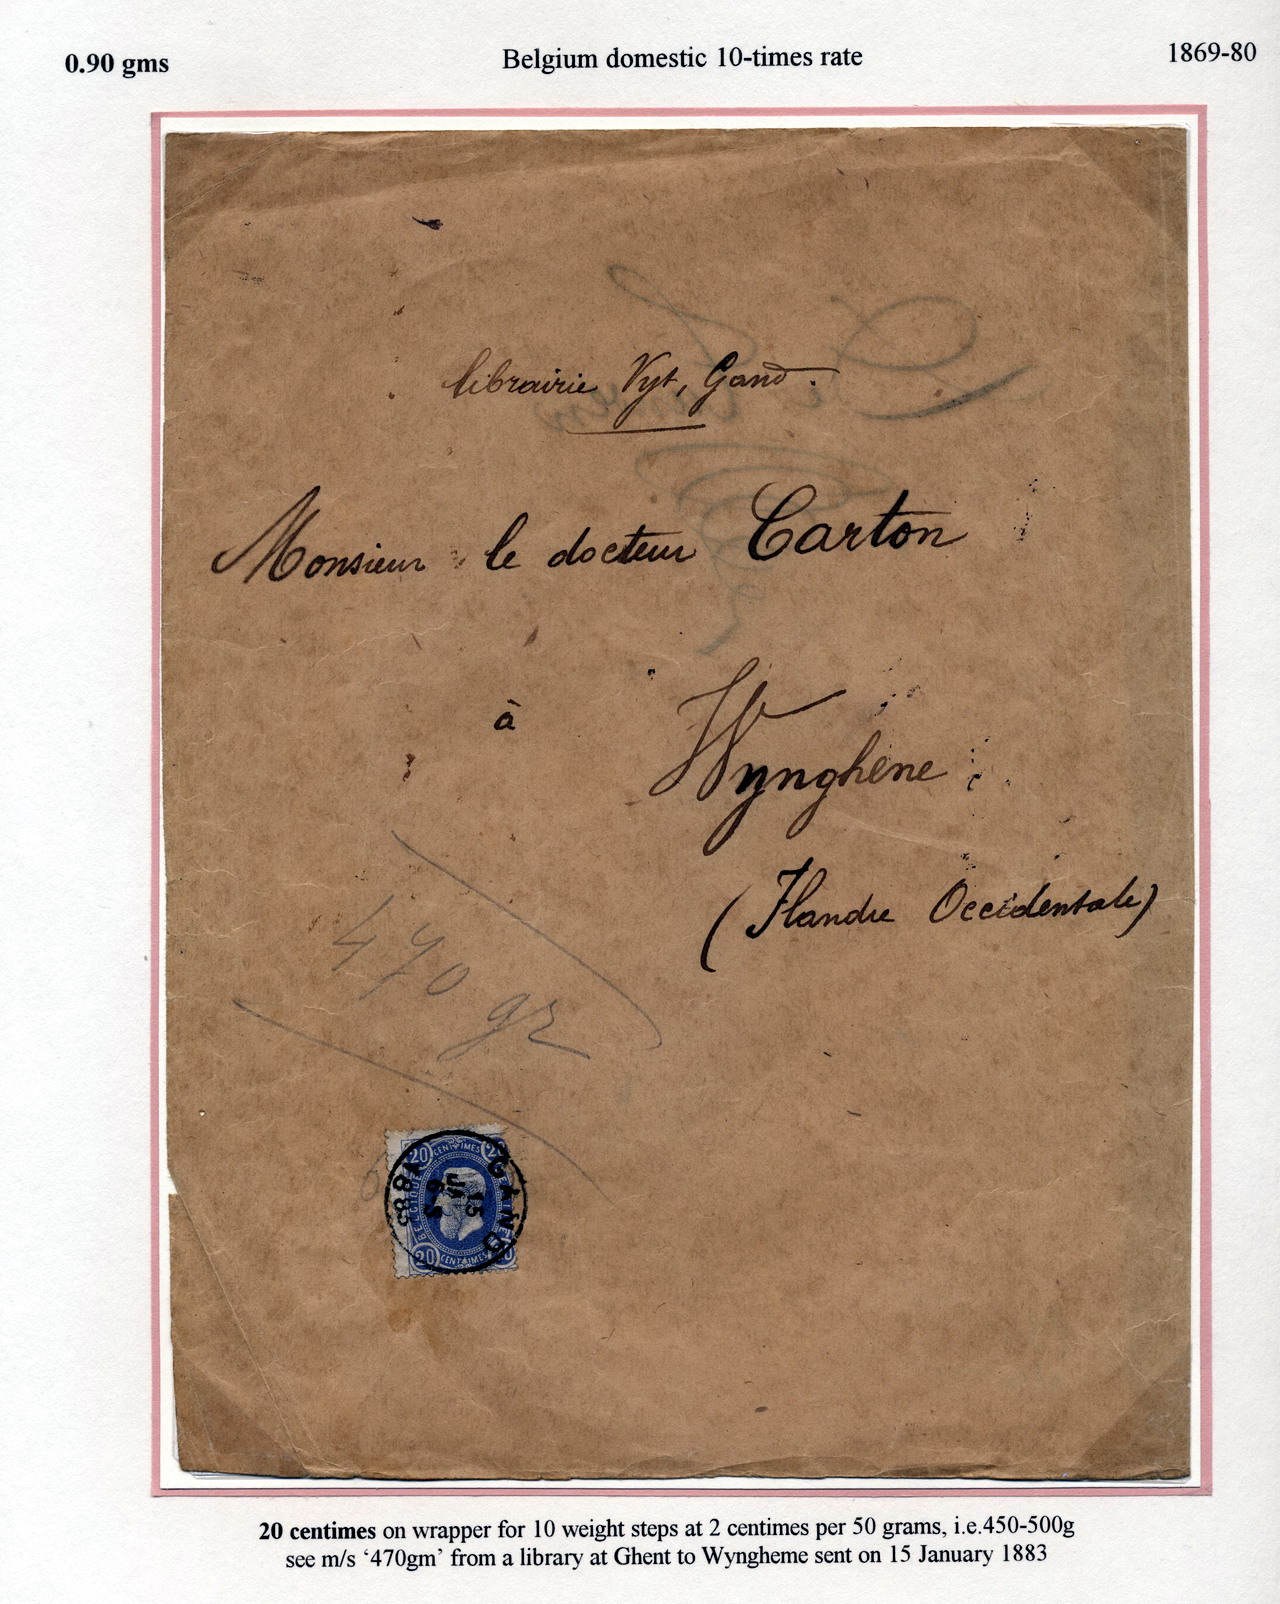 0.90 gms
Belgium domestic 10-times rate
1869-80
librairie Vyt, Gand.
Monsieur le docteur Carton
à
Wynghene
(Flandre Occidentale)
470 gr
20 CENTIMES 20
BELGIQUE
20 CENTIMES 20
GAND
15
1883
20 centimes on wrapper for 10 weight steps at 2 centimes per 50 grams, i.e.450-500g
see m/s ‘470gm’ from a library at Ghent to Wyngheme sent on 15 January 1883